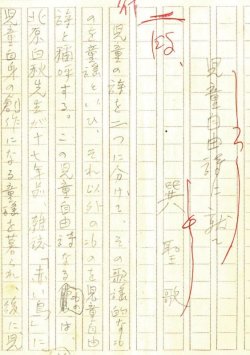 児童自由詩に就て
巽聖歌
児童の詩を二つに分けて、その歌謡的なも
のを童謡といひ、それ以外のものを児童自由
詩と稱呼する。この児童自由詩なるものは
北原白秋先生が十七年前、雑誌「赤い鳥」に
児童自身の創作になる童謡を募られ、後に児